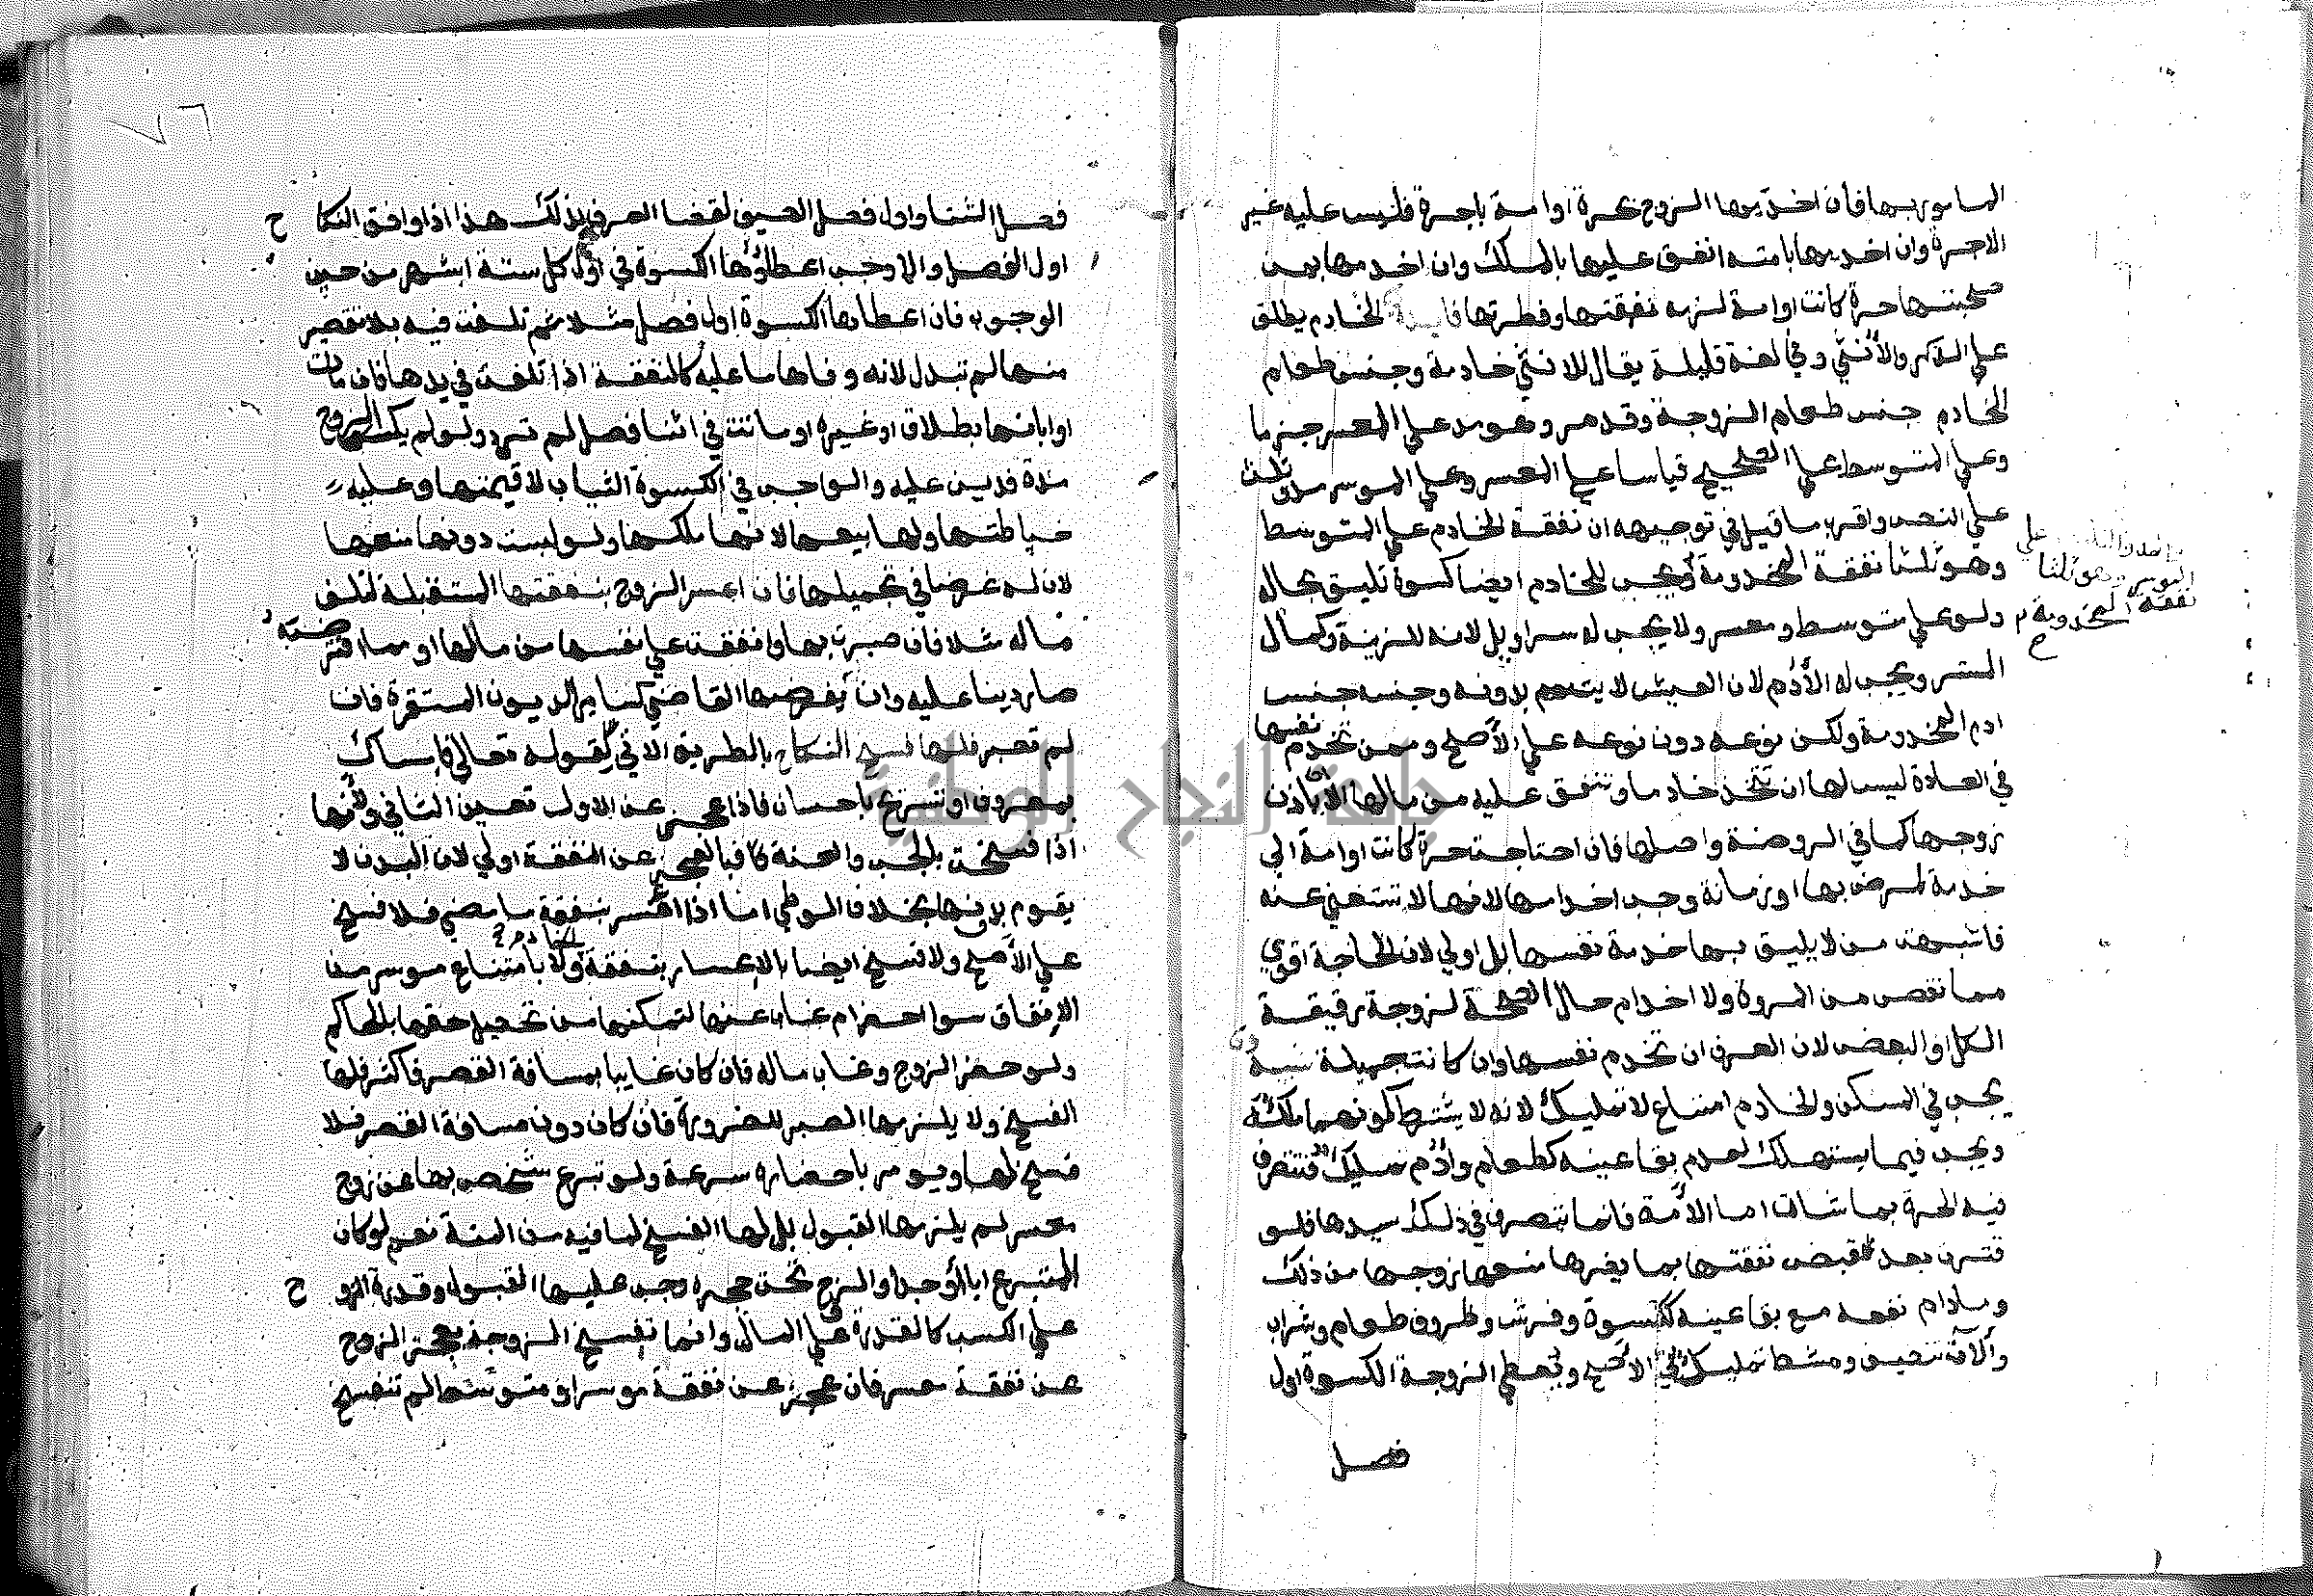 المامور بها فان اخدمها الزوج بحرة او امة باجرة فليس عليه غير
الاجرة وان اخدمها بامته انفق عليها بالملك وان اخدمها بمن
صحبتها حرة كانت او امة لزمه نفقتها وفطرتها فايدة الخادم يطلق
علي الذكر والأنثي وفي لغة قليلة يقال للانثي خادمة وجنس طعام
الخادم جنس طعام الزوجة وقد مر وهو مد علي المعسر جزما
وعلي المتوسط علي الصحيح قياسا علي المعسر وعلي الموسر مد وثلث
علي النص واقرب ما قيل في توجيهه ان نفقة الخادم علي المتوسط
وهو ثلثا نفقة المخدومة ويجب للخادم ايضا كسوة تليق بحاله
علي
الموسر وهو ثلثا
نفقة المخدومة م
ح
ولو علي متوسط ومعسر ولا يجب له سراويل لانه للزينة وكمال
الستر ويجب له الأدم لان العيش لا يتم بدونه وجنسه جنس
ادم المخدومة ولكن نوعه دون نوعه علي الأصح ومن تخدم نفسها
في العادة ليس لها ان تتخذ خادما وتنفق عليه من مالها الا باذن
زوجها كما في الروضة واصلها فان احتاجت حرة كانت او امة الي
خدمة لمرض بها او زمانة وجب اخدامها لانها لا تستغني عنه
فاشبهت من لا يليق بها خدمة نفسها بل اولي لان الحاجة اقوي
مما نقص من المروة ولا اخدام حال الصحة لزوجة رقيقة
الكل او البعض لان العرف ان تخدم نفسها وان كانت جميلة تنبيه
يجب في المسكن والخادم امتاع لا تمليك لانه لا يشترط كونهما ملكه
ويجب فيما يستهلك لعدم بقا عينه كطعام وأدم تمليك فتتصرف
فيه الحرة بما شات اما الأمة فانما يتصرف في ذلك سيدها فلو
قترت بعد قبض نفقتها بما يضرها منعها زوجها من ذلك
وما دام نفعه مع بقا عينه ككسوة وفرش وظروف طعام وشراب
وآلات تنظيف ومشط تمليك في الأصح وتعطي الزوجة الكسوة اول
فصل
٧٦
فصل الشتا واول فصل الصيف لقضا العرف بذلك هذا اذا وافق النكاح
اول الفصل والا وجب اعطاؤها الكسوة في اول كل ستة اشهر من حين
الوجوب فان اعطاها الكسوة اول فصل مثلا ثم تلفت فيه بلا تقصير
منها لم تبدل لانه وفاها ما عليه كالنفقة اذا تلفت في يدها فان مات
او ابانها بطلاق او غيره او ماتت في اثنا فصل لم ترد ولو لم يكسها الزوج
مدة فدين عليه والواجب في الكسوة الثياب لا قيمتها وعليه
خياطتها ولها بيعها لانها ملكها ولو لبست دونها منعها
لان له غرضا في تجميلها فان اعسر الزوج بنفقتها المستقبلة لتلف
ماله مثلا فان صبرت بها وانفقت علي نفسها من مالها او مما اقترضته
صار دينا عليه وان لم يفرضها القاضي كساير الديون المستقرة فان
لم تصبر فلها فسخ النكاح بالطريق الاتي لقوله تعالي فامساك
بمعروف او تسريح باحسان فاذا عجز عن الاول تعين الثاني ولأنها
اذا فسخت بالجب والعنة فبالعجز عن النفقة اولي لان البدن لا
يقوم بدونها بخلاف الوطي اما اذا اعسر بنفقة ما مضي فلا فسخ
علي الأصح ولا فسخ ايضا بالإعسار بنفقة الخادم ولا بامتناع موسر من
الإنفاق سوا احضر ام غاب عنها لتمكنها من تحصيل حقها بالحاكم
ولو حضر الزوج وغاب ماله فان كان غايبا بمسافة القصر فاكثر فلها
الفسخ ولا يلزمها الصبر للضرورة فان كان دون مسافة القصر فلا
فسخ لها ويومر باحضاره بسرعة ولو تبرع شخص بها عن زوج
معسر لم يلزمها القبول بل لها الفسخ لما فيه من المنة نعم لو كان
المتبرع ابا او جدا والزوج تحت حجره وجب عليها القبول وقدرة الزوج
علي الكسب كالقدرة علي المال وانما تفسخ الزوجة بعجز الزوج
عن نفقة معسر فان عجز عن نفقة موسر او متوسط لم تنفسخ